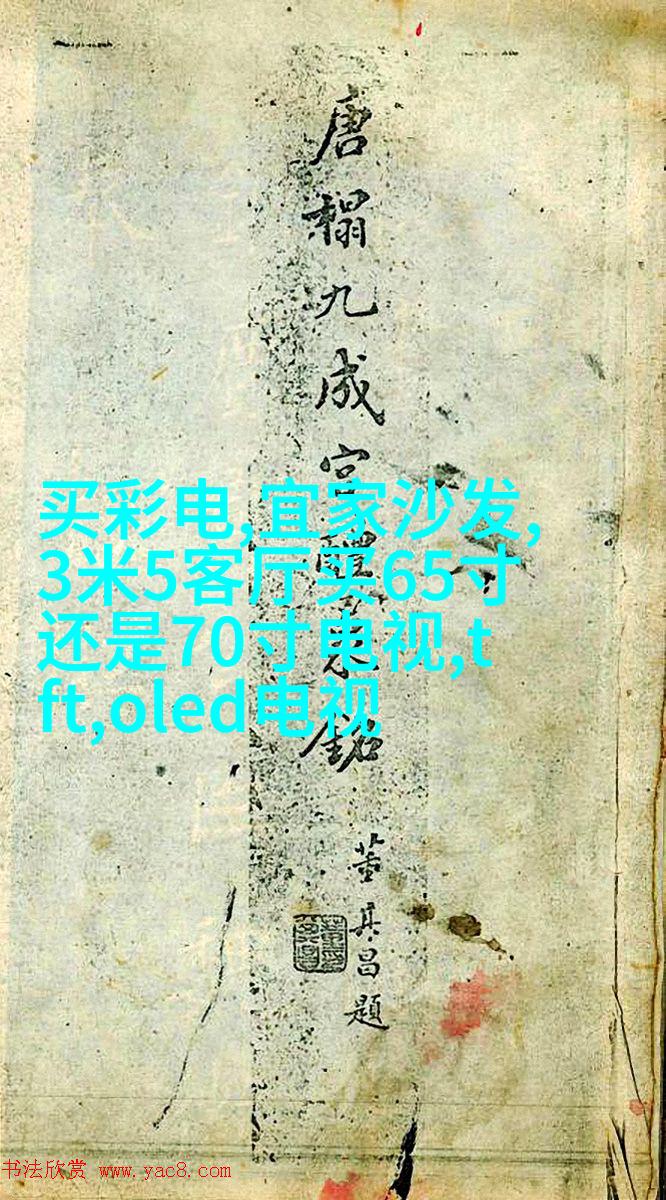 唐榻九成宮醴泉銘
董其昌題
买彩电,宜家沙发,
3米5客厅买65寸
还是70寸电视,t
ft,oled电视
书法欣赏 www.yac8.com